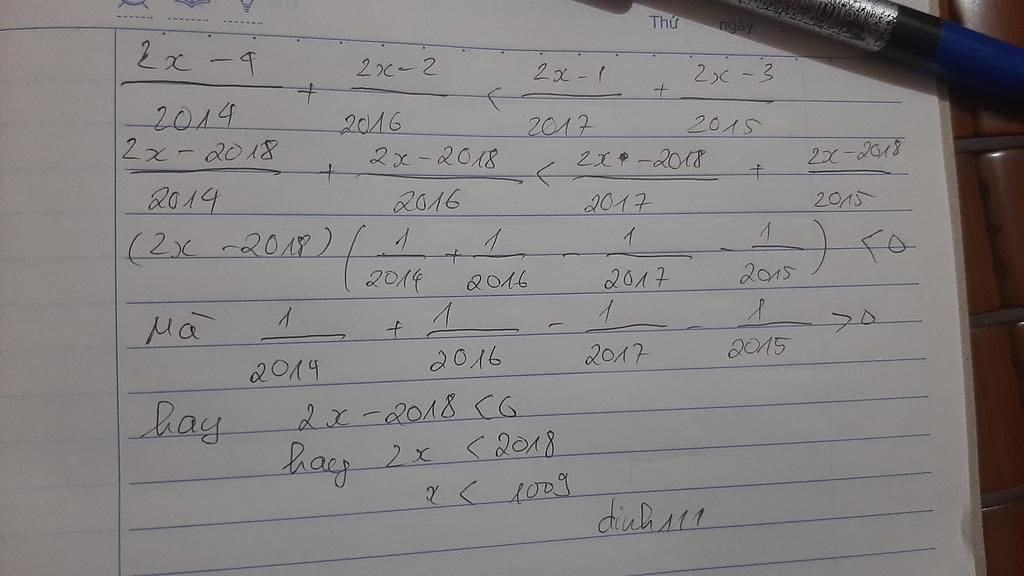 Thứ ngày
2x - 4 / 2014 + 2x - 2 / 2016 < 2x - 1 / 2017 + 2x - 3 / 2015
2x - 2018 / 2014 + 2x - 2018 / 2016 < 2x - 2018 / 2017 + 2x - 2018 / 2015
(2x - 2018) (1/2014 + 1/2016 - 1/2017 - 1/2015) < 0
Mà 1/2014 + 1/2016 - 1/2017 - 1/2015 > 0
hay 2x - 2018 < 0
hay 2x < 2018
x < 1009
dinh111